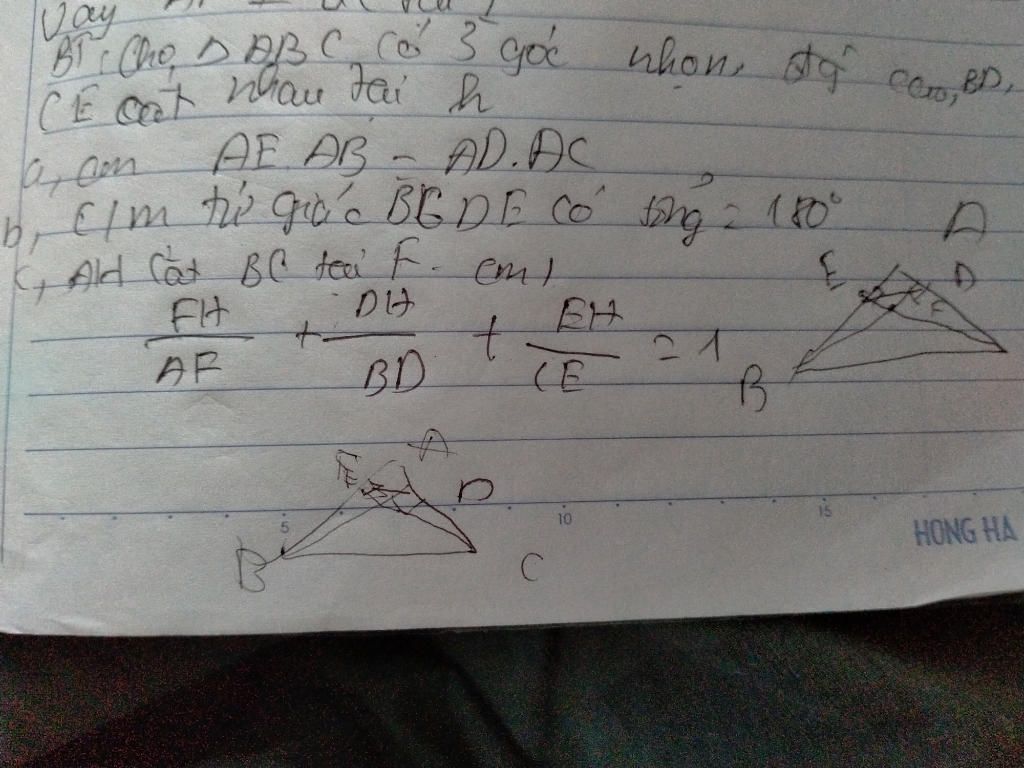 Vay
BT: Cho Δ ABC có 3 góc nhọn, BD,
CE cắt nhau tại h
a, cm AE. AB = AD.AC
b, C/m tứ giác BCDE có tổng = 180°
c, AH cắt BC tại F. cm)
FH/AF + DH/BD + EH/CE = 1
A
E D
F
B
A
E D
B C
5 10 15
HONG HA